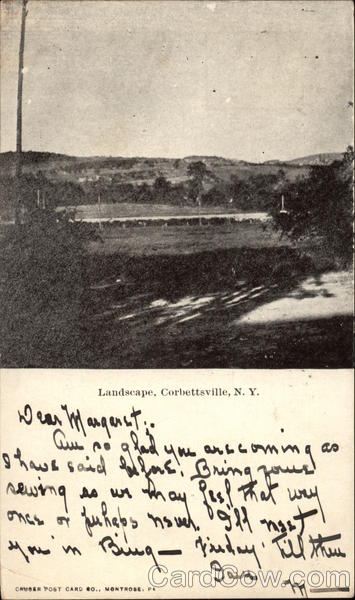 Landscape, Corbettsville, N. Y.
Dear Margaret:
Am so glad you are coming as
I have said before. Bring your
sewing as we may feel that way
once or perhaps never. I'll meet
you in Bing— Friday Till then
M
CRUSER POST CARD CO., MONTROSE, PA
CardCow.com